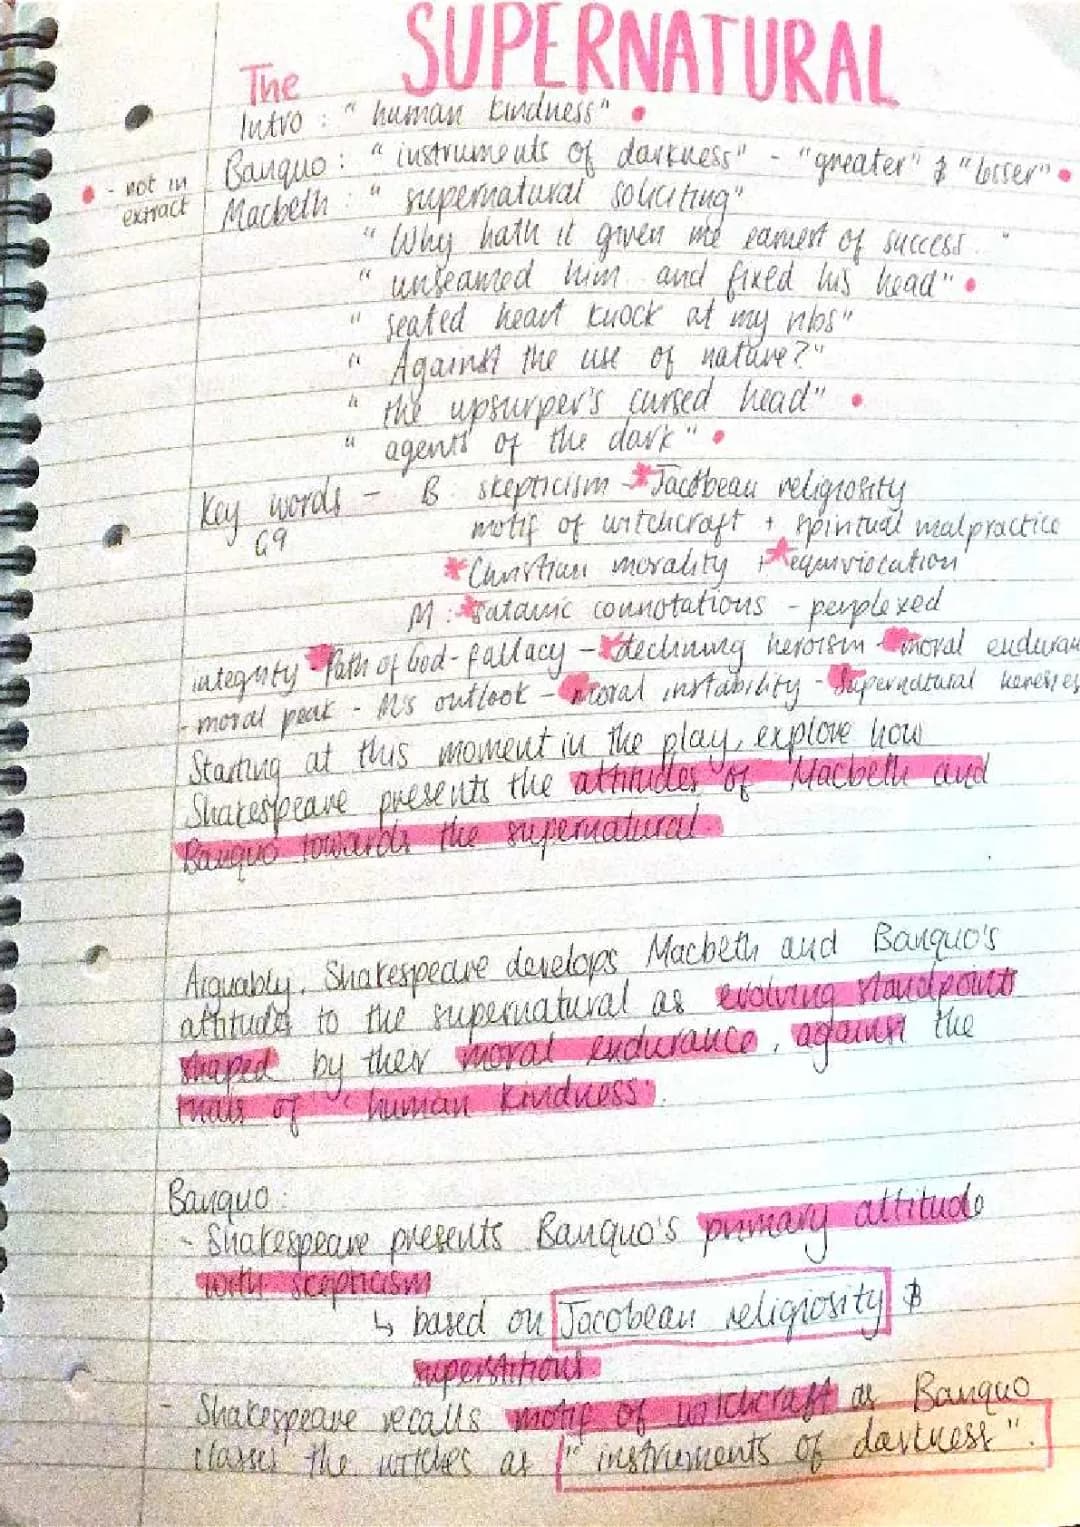 The SUPERNATURAL
Intro : "human kindness" •
Banquo : "instruments of darkness" - "greater" & "lesser" •
• - not in extract
Macbeth : "supernatural soliciting"
"Why hath it given me earnest of success.."
"unseamed him and fixed his head" •
"seated heart knock at my ribs"
"Against the use of nature?"
"the upsurper's cursed head" •
"agents of the dark" •
Key words - B. skepticism * Jacobean religiosity
G9 motif of witchcraft + spiritual malpractice
* Christian morality + * equiviocation
M : * satanic connotations - perplexed
integrity * Path of God - fallacy - * declining heroism - moral enduran
- moral peak - M's outlook - moral instability - Supernatural heresies
Starting at this moment in the play, explore how
Shakespeare presents the attitudes of Macbeth and
Banquo towards the supernatural.
Arguably, Shakespeare develops Macbeth and Banquo's
attitudes to the supernatural as evolving standpoints
shaped by their moral endurance, against the
trials of "human kindness".
Banquo:
- Shakespeare presents Banquo's primary attitude
with skepticism
↳ based on Jacobean religiosity &
superstitions
- Shakespeare recalls motif of witchcraft as Banquo
classes the witches as "instruments of darkness".